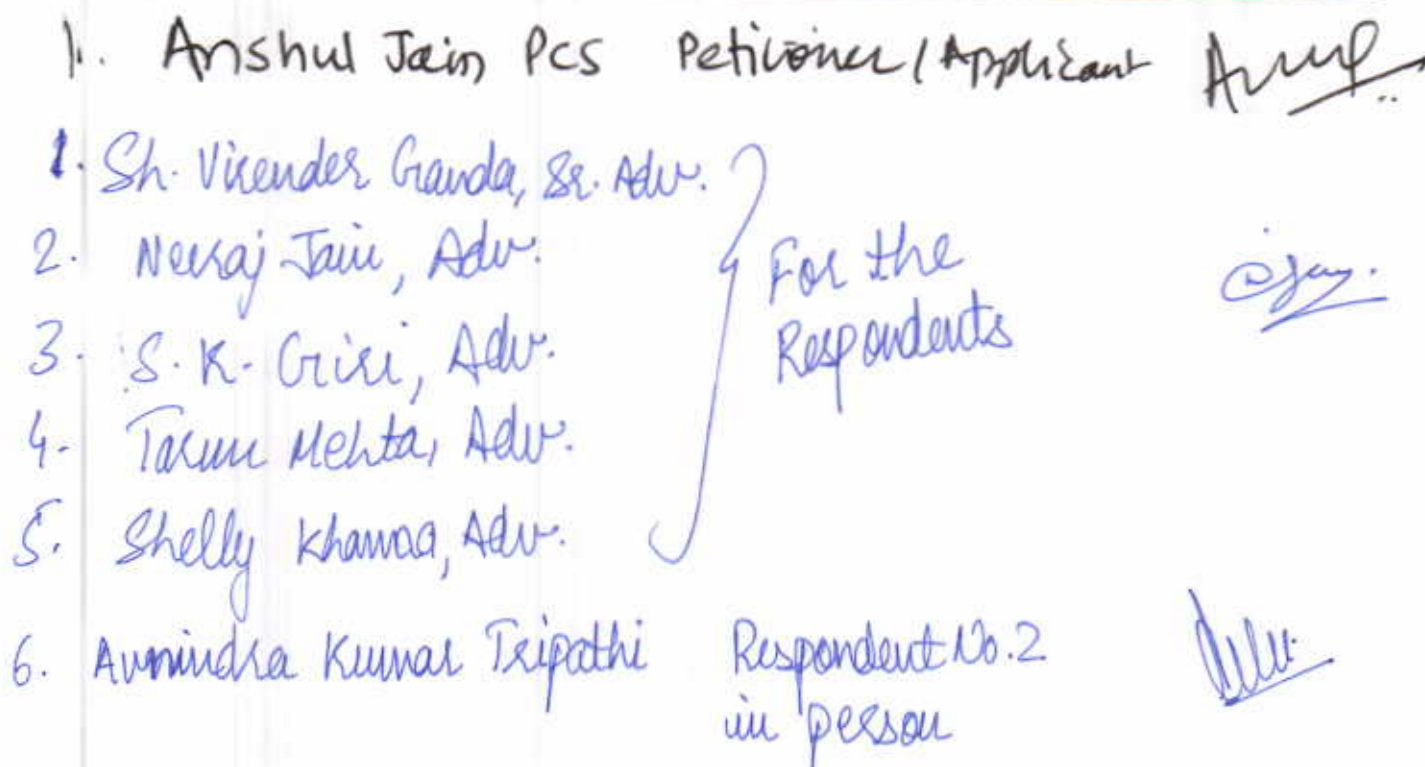 1. Anshul Jain PCS Petitioner/Applicant
1. Sh. Virender Ganda, Sr. Adv.
2. Neeraj Jain, Adv.
3. S. K. Giri, Adv.
4. Tarun Mehta, Adv.
5. Shelly Khanna, Adv.
For the
Respondents
6. Avnindra Kumar Tripathi Respondent No.2
in person